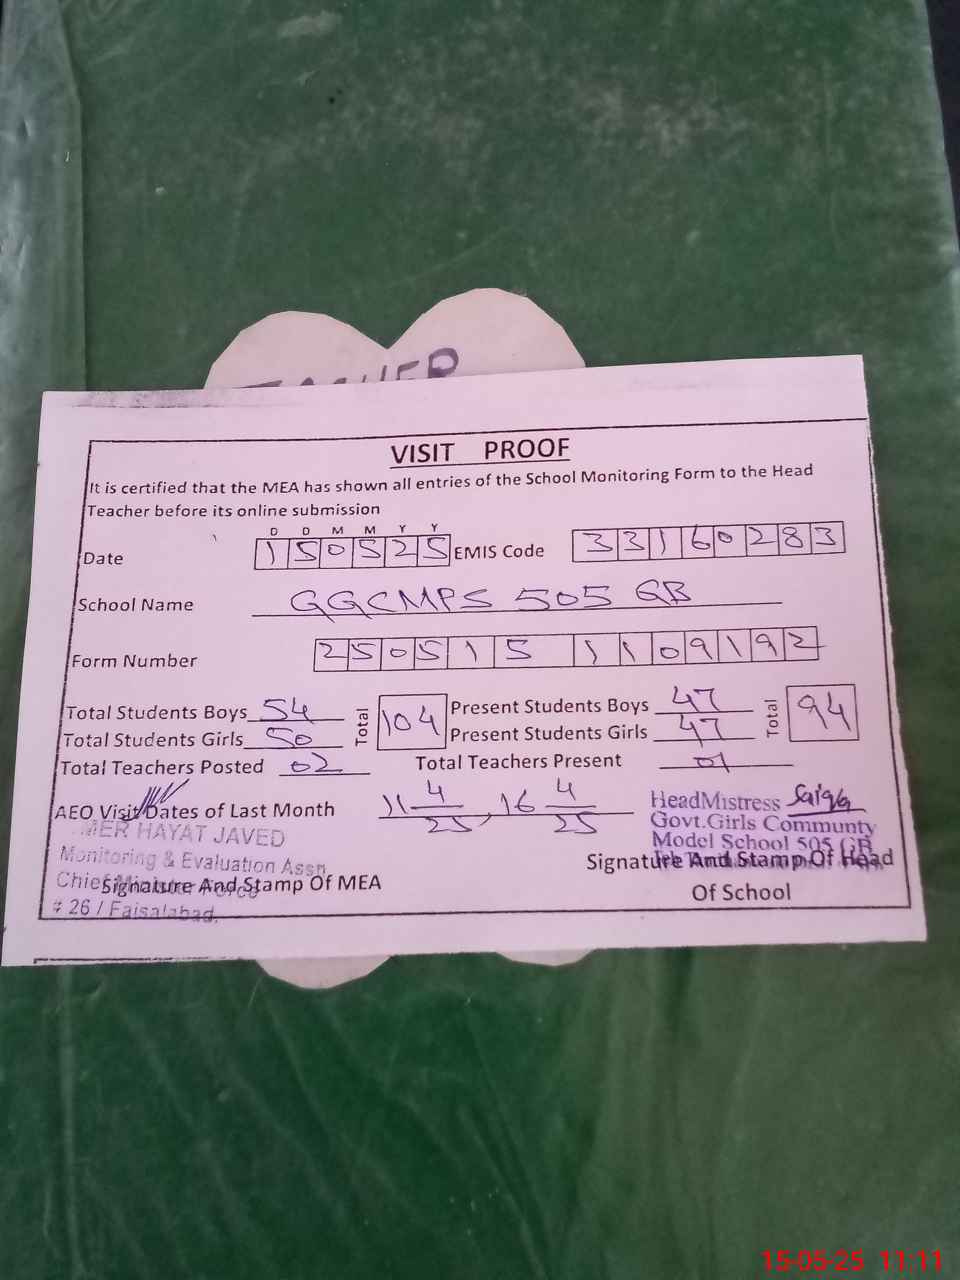 TEACHER
VISIT PROOF
It is certified that the MEA has shown all entries of the School Monitoring Form to the Head
Teacher before its online submission
D D M M Y Y
Date 150525 EMIS Code 33160283
School Name GGCMPS 505 GB
Form Number 250515 1109192
Total Students Boys 54 Total 104 Present Students Boys 47 Total 94
Total Students Girls 50 Present Students Girls 47
Total Teachers Posted 02 Total Teachers Present 01
AEO Visit Dates of Last Month 11 4/25, 16 4/25
HeadMistress Saiqa
Govt.Girls Communty
Model School 505 GB
MER HAYAT JAVED
Monitoring & Evaluation Assn
Chief Minister Force
# 26 / Faisalabad.
Signature And Stamp Of MEA
Signature And Stamp Of Head
Of School
15-05-25 11:11